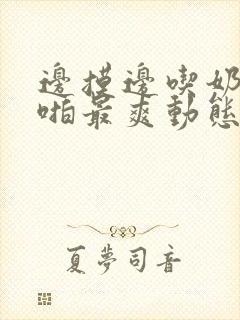 邊摸邊喫奶
啪最爽動態
夏夢司音